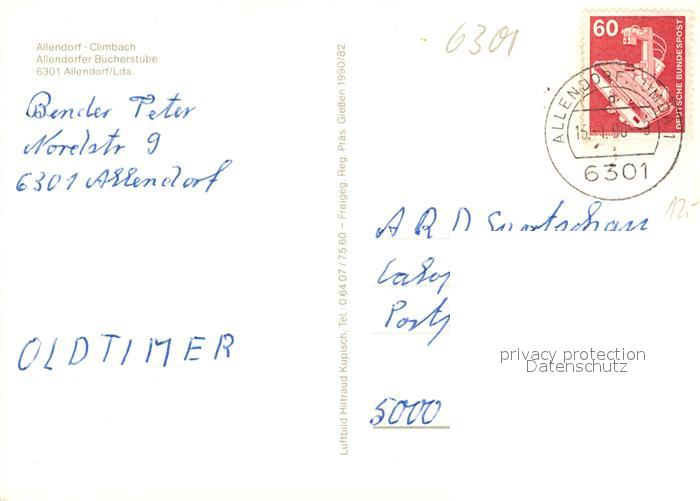 Allendorf - Climbach
Allendorfer Bücherstube
6301 Allendorf/Lda.
Bender Peter
Nordstr 9
6301 Allendorf
OLDTIMER
Luftbild Hiltraud Kupisch, Tel.: 0 64 07 / 75 60 – Freigeg. Reg. Präs. Gießen 1990/82
6301
60
DEUTSCHE BUNDESPOST
ALLENDORF
6301
12.-
ARD Sportschau
5000
privacy protection
Datenschutz